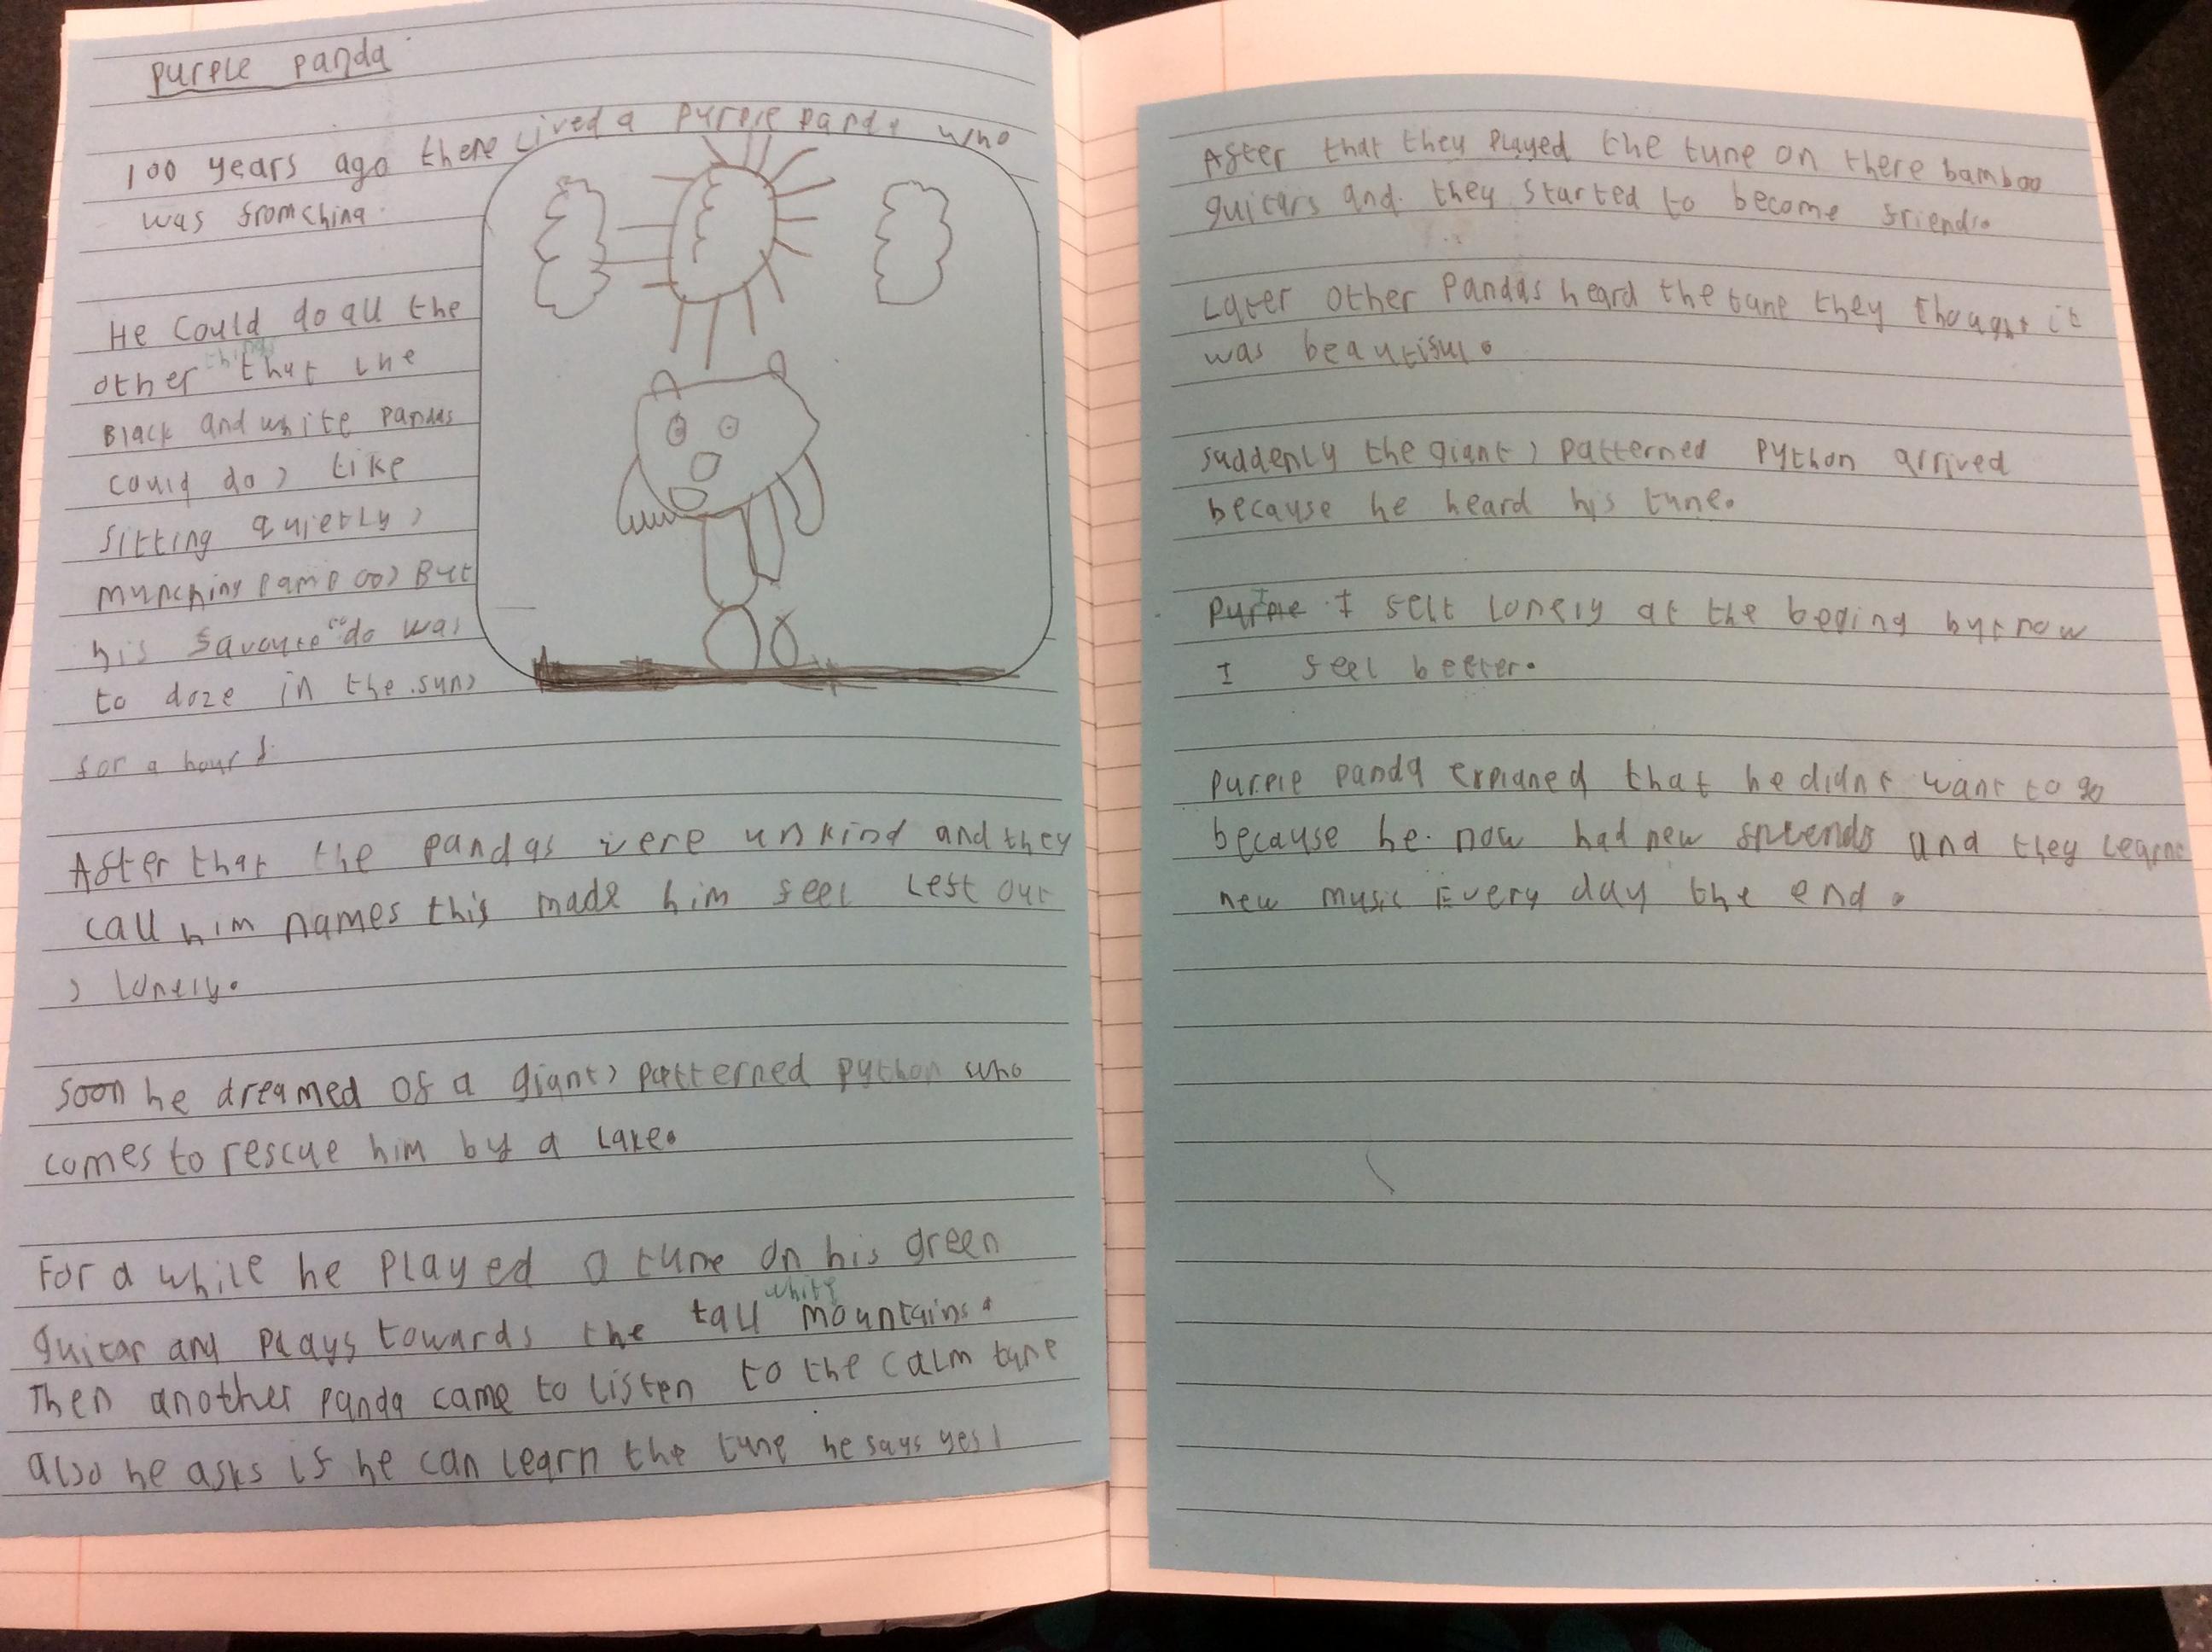 Purple panda
100 years ago there lived a purple panda who
was from china.
He Could do all the
things
other that the
Black and white pandas
could do, like
sitting quietly,
munching pamboo, But
his favourte to do was
to doze in the sun,
for a hour
After that the pandas were unkind and they
call him names this made him feel left out
, lonely.
Soon he dreamed of a giant, patterned python who
comes to rescue him by a lake.
For a while he played a tune on his green
white
guitar and plays towards the tall mountains.
Then another panda came to listen to the calm tune
also he asks if he can learn the tune he says yes!
After that they played the tune on there bamboo
guitars and. they started to become friends.
Later other pandas heard the tune they thought it
was beautiful.
suddenly the giant, patterned python arrived
because he heard his tune.
I felt lonely at the beging but now
I feel better.
purple panda explaned that he didnt want to go
because he now had new and they learnd
new music Every day the end.